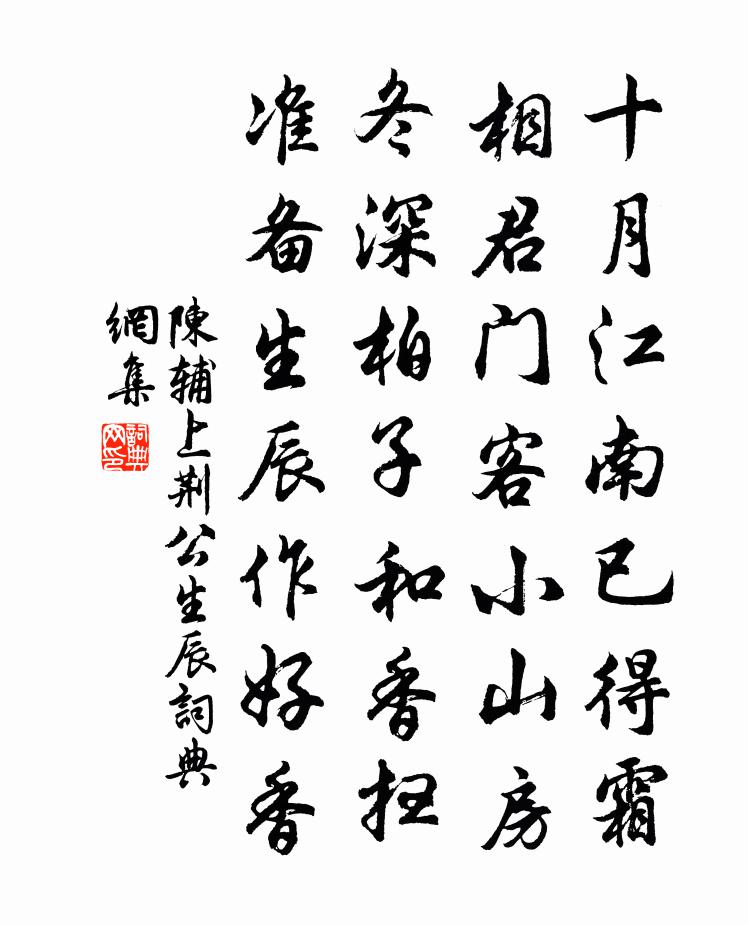 十月江南已得霜
相君门客小山房
冬深柏子和香
准备生辰作好香
陳輔上荆公生辰詞典
網集
詞典
网印